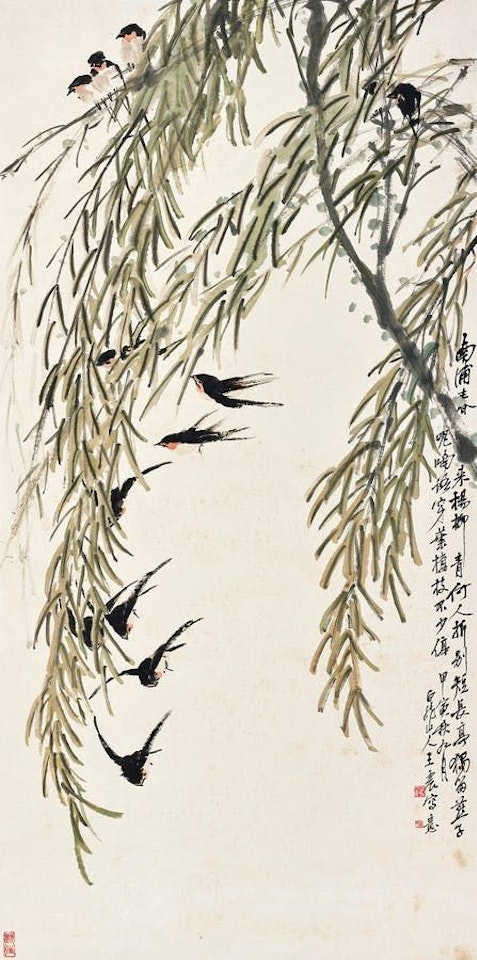 南浦春來楊柳青何人折別短長亭獨留燕子
呢喃語穿葉枝不少停
甲寅秋九月
白龍山人王震寫意